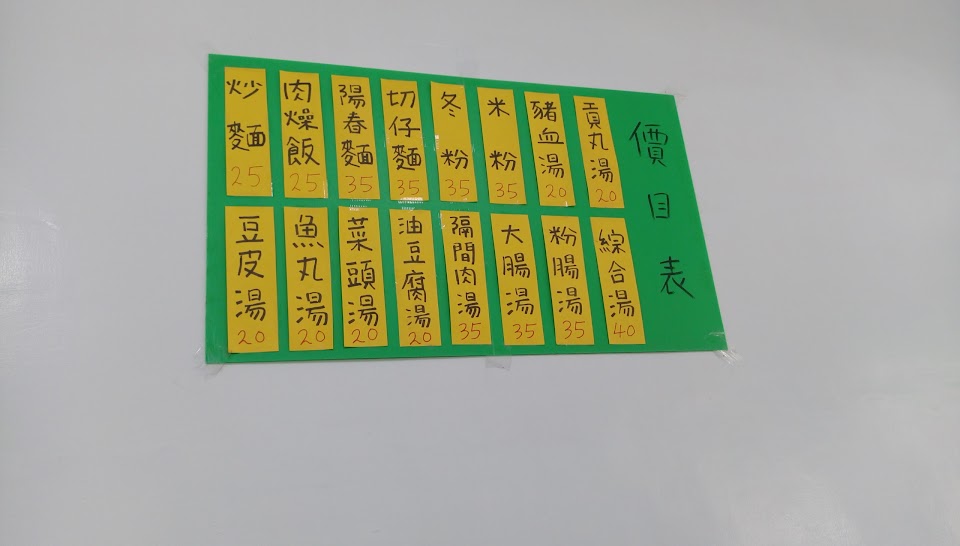 價目表
貢丸湯 20
豬血湯 20
米粉 35
冬粉 35
切仔麵 35
陽春麵 35
肉燥飯 25
炒麵 25
綜合湯 40
粉腸湯 35
大腸湯 35
隔間肉湯 35
油豆腐湯 20
菜頭湯 20
魚丸湯 20
豆皮湯 20